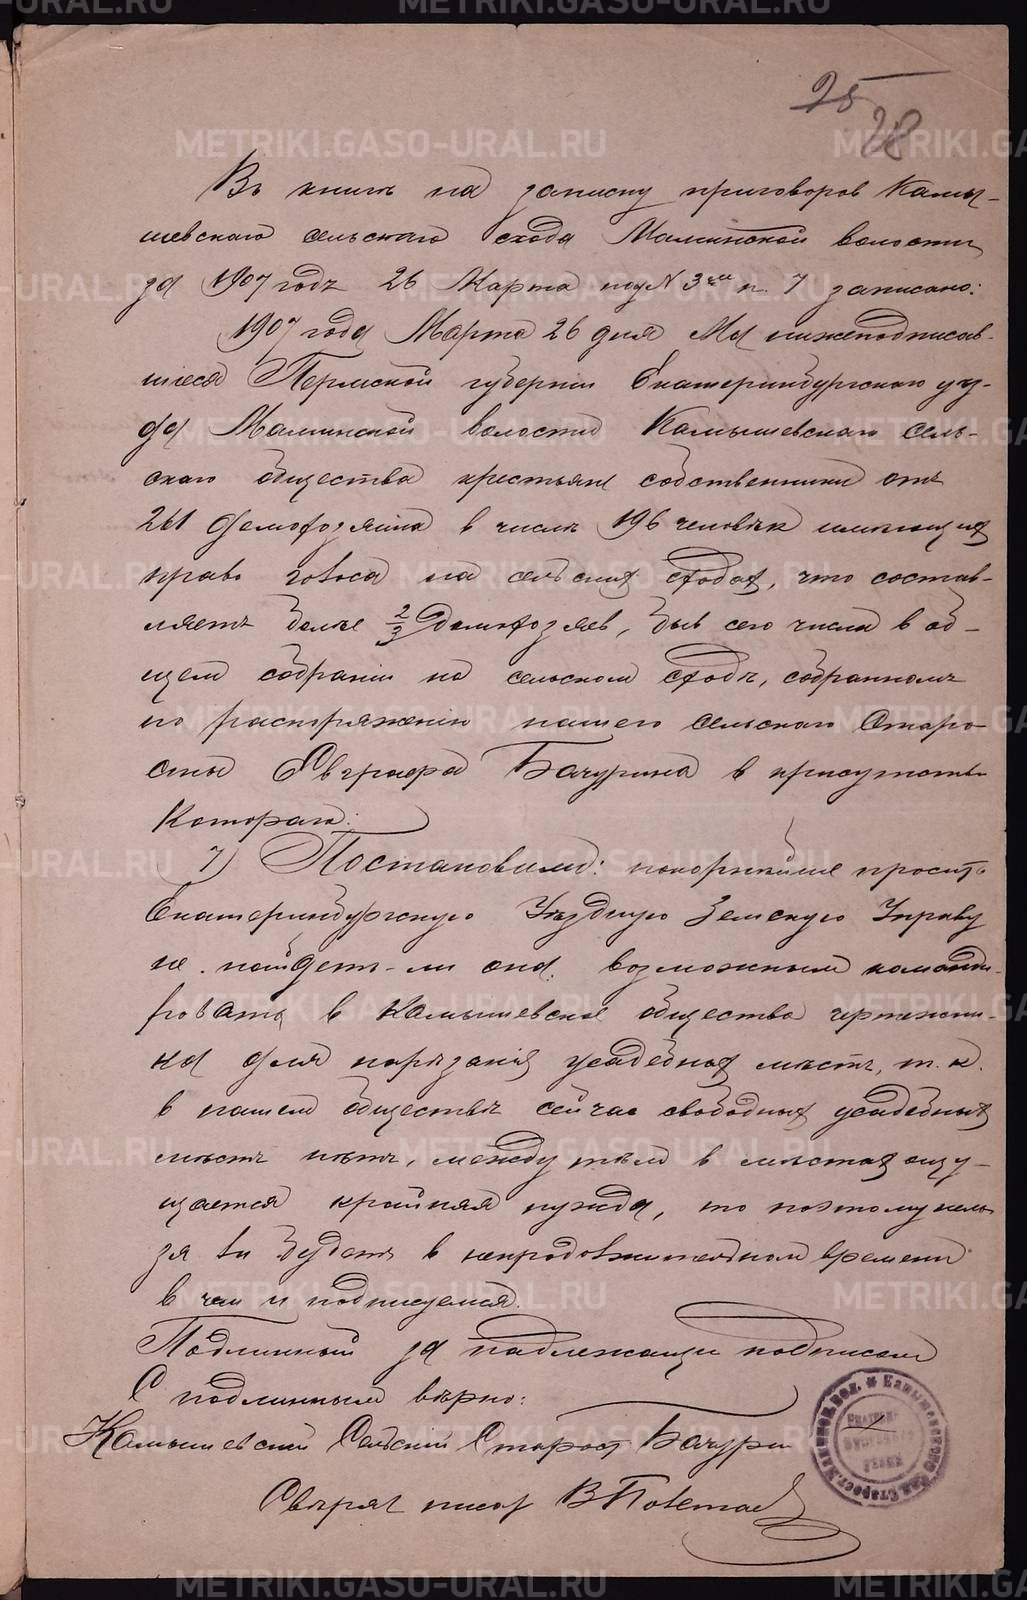 25
28
Въ книгѣ на записку приговоровъ Камы-
шевскаго сельскаго схода Маминской волости
за 1907 годъ 26 Марта под № 3 п. 7 записано:
1907 года Марта 26 дня Мы нижеподписав-
шіеся Пермской губерніи Екатеринбургскаго уѣз-
да Маминской волости Камышевскаго сель-
скаго общества крестьяне собственники отъ
261 домохозяина в числѣ 196 человѣк имѣющих
право голоса на сельских сходах, что состав-
ляетъ болѣе 2/3 домохозяев, быв сего числа в об-
щем собраніи на сельском сходѣ, собранномъ
по распоряженію нашего сельскаго Старо-
сты Евграфа Бачурина в присутств
Котораго:
7) Постановили: покорнѣйше просить
Екатеринбургскую Уѣздную Земскую Управу
не найдетъ-ли она возможным команди-
ровать в Камышевское общество чертежни-
ка для нарѣзанія усадебных мѣстъ, т. к.
в нашем обществѣ сейчас свободных усадебных
мѣстъ нѣтъ, между тѣм в мѣстах ощу-
щается крайняя нужда, то поэтому нель-
зя ли будетъ в непродолжительном времени
в чем и подписуемся.
Подлинный за надлежащи подписом
С подлинным вѣрно:
Камышевский Сельский Старост Бачурин
Свѣрял писар В
METRIKI.GASO-URAL.RU